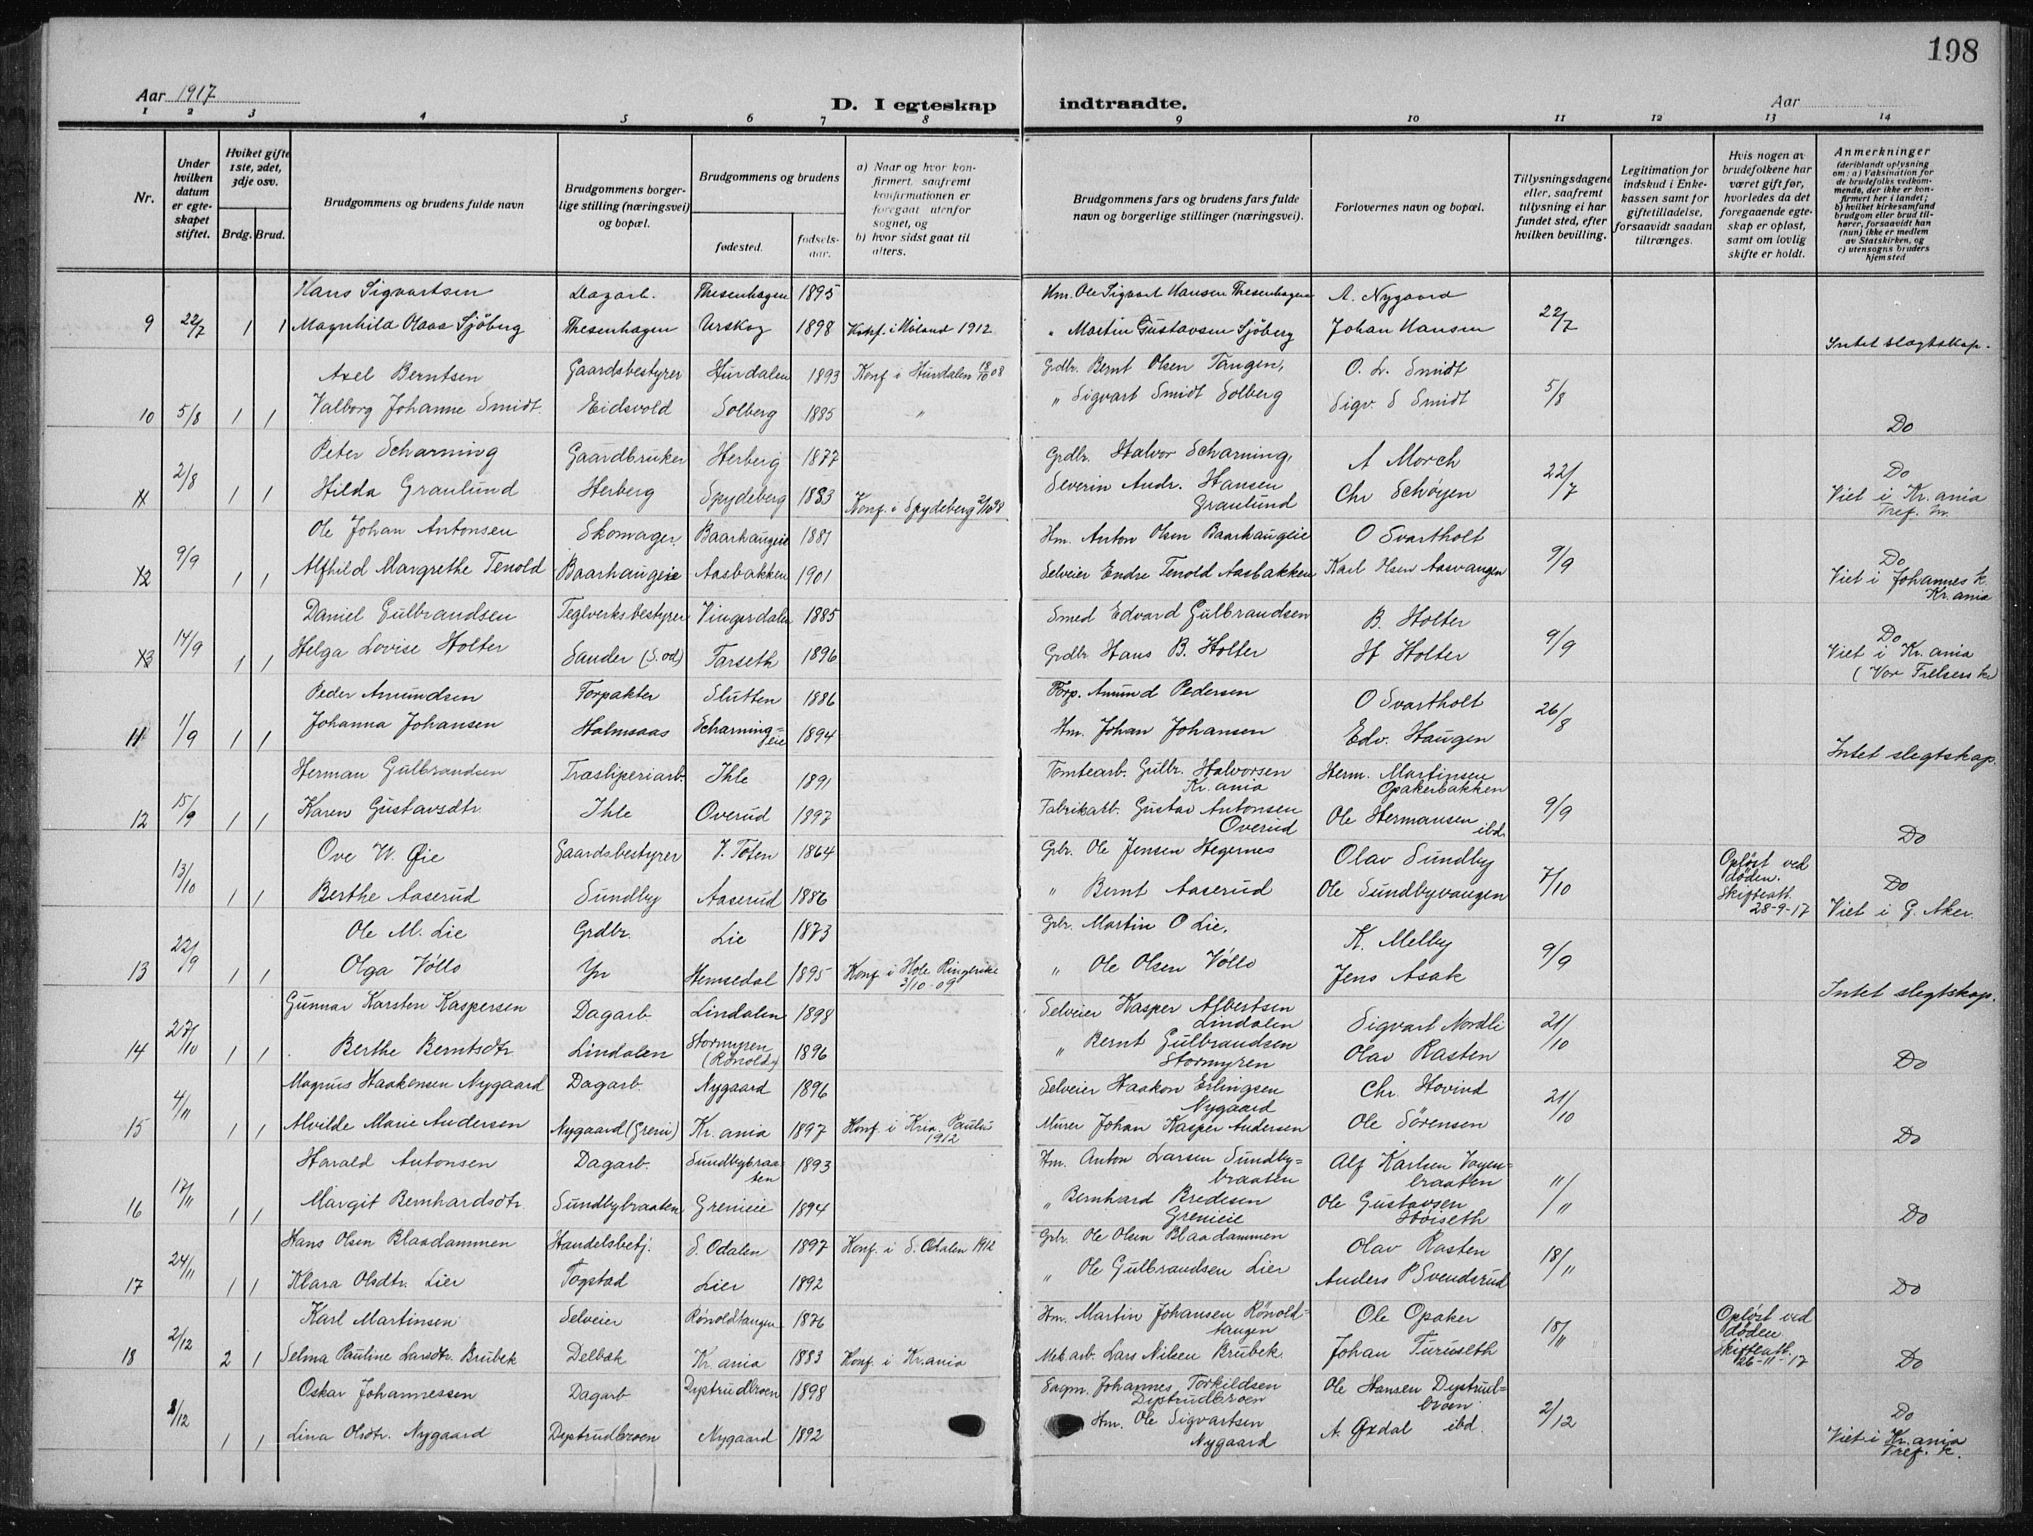 198
Aar 1917
D. I egteskap indtraadte.
Aar
1 2 3 4 5 6 7 8 9 10 11 12 13 14
Nr.
Under hvilken datum er egteskapet stiftet.
Hviket gifte 1ste, 2det, 3dje osv.
Brdg. Brud.
Brudgommens og brudens fulde navn
Brudgommens borgerlige stilling (næringsvei) og bopæl.
Brudgommens og brudens
fødested. fødselsaar.
a) Naar og hvor konfirmert, saafremt konfirmationen er foregaat utenfor sognet, og
b) hvor sidst gaat til alters.
Brudgommens fars og brudens fars fulde navn og borgerlige stillinger (næringsvei).
Forlovernes navn og bopæl.
Tillysningsdagene eller, saafremt tillysning ei har fundet sted, efter hvilken bevilling.
Legitimation for indskud i Enkekassen samt for giftetilladelse, forsaavidt saadan tiltrænges.
Hvis nogen av brudefolkene har været gift før, hvorledes da det foregaaende egteskap er opløst, samt om lovlig skifte er holdt.
Anmerkninger
(deriblandt oplysning om: a) Vaksination for de brudefolks vedkommende, der ikke er konfirmert her i landet; b) hvilket kirkesamfund brudgom eller brud tilhører, forsaavidt han (hun) ikke er medlem av Statskirken, og c) utensogns bruders hjemsted
Hans Sigvartsen Dagarb. Thesenhagen 1895 Hm. Ole Sigvart Hansen Thesenhagen A. Nygaard
9 22/7 1 1 Magnhild Olaaa Sjöberg Thesenhagen Urskog 1898 Konf. i Høland 1912 " Martin Gustavsen Sjöberg Johan Hansen 22/7 Intet slegtskap.
Axel Berntsen Gaardsbestyrer Hurdalen 1893 Konf i Hurdalen 18/10 08 Grdbr. Bernt Olsen Tangen, O. L. Smidt
10 5/8 1 1 Valborg Johanne Smidt Eidsvold Solberg 1885 " " Sigvart Smidt Solberg Sigv. S Smidt 5/8 Do
Peter Scharning Gaardbruker Herberg 1877 Grdbr. Halvor Scharning, A Morch Do
2/8 1 1 Hilda Graulund Herberg Spydeberg 1883 Konf. i Spydeberg 2/10 98 Severin Andr. Hansen Graulund Chr Schøyen 22/7 Viet i Kr.ania Tref. k.
Ole Johan Antonsen Skomager. Baarhaugeie 1881 Hm. Anton Olsen Baarhaugeie O Svartholt Do
9/9 1 1 Alfhild Margrethe Tenold Baarhaugeie Aasbakken 1901 Selveier Endre Tenold Aasbakken Karl Olsen Aasvangen 9/9 Viet i Johannes k. Kr.ania
Daniel Gulbrandsen Teglverksbestyrer Vingerdalen 1885 Smed Edvard Gulbrandsen B. Holter Do
14/9 1 1 Helga Lovise Holter Sander (S. od) Tarseth 1896 Grdbr Hans B. Holter H Holter 9/9 Viet i Kr. ania (Vor Frelsers k)
Peder Amundsen Forpakter Slutten 1886 Forp. Amund Pedersen O Svartholt
11 1/9 1 1 Johanna Johansen Holmsaas Scharningeie 1894 Hm. Johan Johansen Edv. Haugen 26/8 Intet slegtskap.
Herman Gulbrandsen Træsliperiarb. Ihle 1891 Tomtearb. Gulbr. Halvorsen Kr.ania Herm. Martinsen Opakerbakken
12 15/9 1 1 Karen Gustavsdtr. Ihle Overud 1897 Fabrikarb. Gustav Antonsen Overud Ole Hermansen ibd. 9/9 Do
Ove W. Øie Gaardsbestyrer V. Toten 1864 Grbr. Ole Jensen Hegernes Olav Sundby Opløst ved døden. Skifteatt. 28-9-17 Do
13/10 1 1 Berthe Aaserud Sundby Aaserud 1886 " Bernt Aaserud Ole Sundbyvangen 7/10 Viet i G. Aker.
Ole M. Lie Grdbr. Lie 1873 Grbr. Martin O Lie. K. Melby
13 22/9 1 1 Olga Vøllo Yn Hemsedal 1895 Konf i Hole Ringerike 3/10-09 " Ole Olsen Vøllo Jens Asak 9/9 Intet slegtskap.
Gunnar Karsten Kaspersen Dagarb. Lindalen 1898 Selveier Kasper Albertsen Lindalen Sigvart Nordli
14 27/10 1 1 Berthe Berntsdtr Lindalen Stormyren (Rønold) 1896 " Bernt Gulbrandsen Stormyren Olav Rasten 21/10 Do
Magnus Haakensen Nygaard Dagarb. Nygaard 1896 Selveier Haakon Erlingsen Nygaard Chr. Hovind
15 4/11 1 1 Alvilde Marie Andersen Nygaard (Greni) Kr.ania 1897 Konf. i Kria. Paulus 1912 Murer Johan Kasper Andersen Ole Sørensen 21/10 Do
Harald Antonsen Dagarb. Sundbybraaten 1893 Hm. Anton Larsen Sundbybraaten Alf Karlsen Vogenbraaten
16 17/11 1 1 Margit Bernhardsdtr Sundbybraaten Grenieie 1894 " Bernhard Bredesen Grenieie Ole Gustavsen Høiseth 11/11 Do
Hans Olsen Blaadammen Handelsbetj. S. Odalen 1897 Konf. i S. Odalen 1912 Grbr. Ole Olsen Blaadammen Olav Rasten
17 24/11 1 1 Klara Olsdtr. Lier Togstad Lier 1892 " Ole Gulbrandsen Lier Anders P Svendsrud 18/11 Do
Karl Martinsen Selveier Rønoldtangen 1876 Hm. Martin Johansen Rønoldtangen Ole Opaker Opløst ved døden Skifteatt. 26-11-17
18 2/12 2 1 Selma Pauline Larsdtr. Brubek Delbak Kr.ania 1883 Konf. i Kr.ania Mek.arb. Lars Nilsen Brubek. Johan Turuseth 18/11 Do
Oskar Johannessen Dagarb Dystrudbroen 1898 Sagm. Johannes Torkildsen Dystrudbroen Ole Hansen Dystrudbroen Do
2/12 1 1 Lina Olsdtr. Nygaard Dystrudbroen Nygaard 1892 Hm. Ole Sigvartsen Nygaard A. Oxdal ibd. 2/12 Viet i Kr.ania Tref. k.